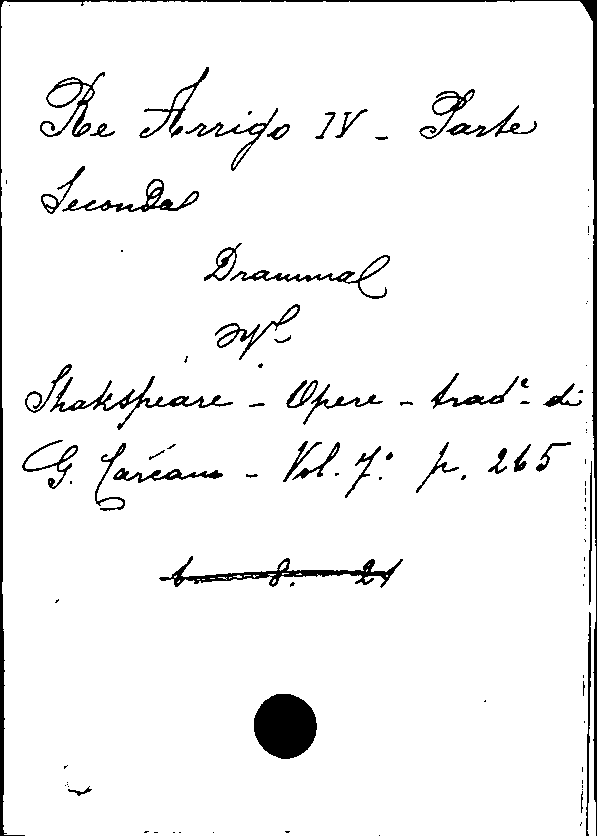 Re Arrigo IV - Parte
Seconda
Dramma
Shakspeare - Opere - trad.e di
G. Carcano - Vol. 7.° p. 265
6. 8. 21